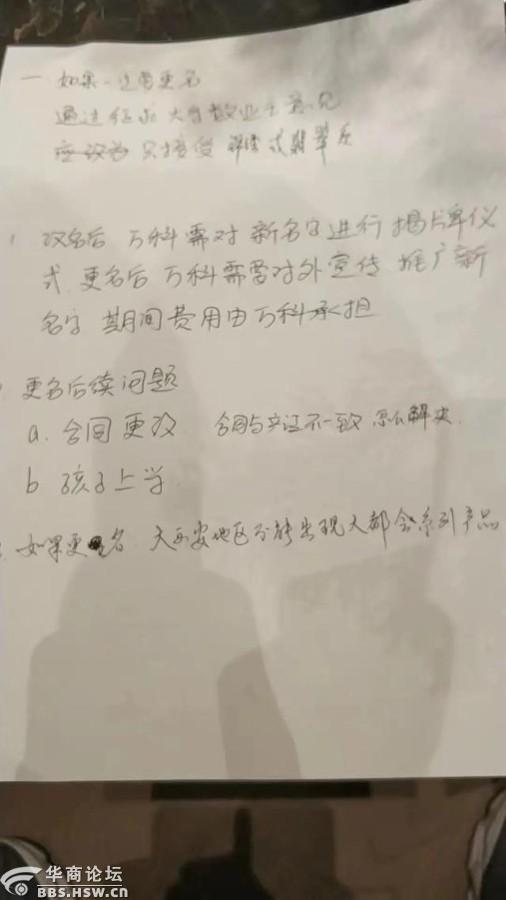 一 如果一定需更名
通过征求大多数业主意见
只接受 翡翠
1 改名后 万科需对新名字进行揭牌仪
式 更名后 万科需要对外宣传 推广新
名字 期间费用由万科承担
更名后续问题
a. 合同更改 合同与产证不一致 怎么解决.
b 孩子上学.
如果更名. 大西安地区不能出现大都会系列产品
华商论坛
BBS.HSW.CN